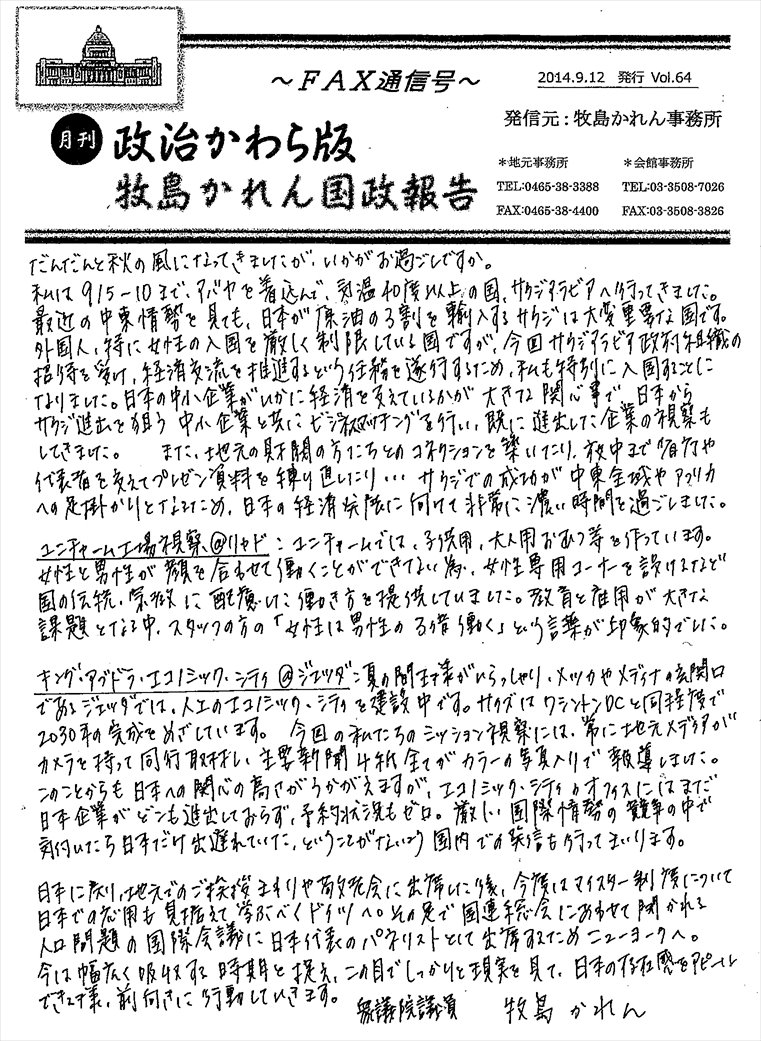 ～ＦＡＸ通信号～
2014.9.12 発行 Vol.64
発信元：牧島かれん事務所
月刊 政治かわら版
牧島かれん国政報告
＊地元事務所 ＊会館事務所
TEL:0465-38-3388 TEL:03-3508-7026
FAX:0465-38-4400 FAX:03-3508-3826
だんだんと秋の風になってきましたが、いかがお過ごしですか。
私は9/5～10まで、アバヤを着込んで、気温40度以上の国、サウジアラビアへ行ってきました。
最近の中東情勢を見ても、日本が原油の3割を輸入するサウジは大変重要な国です。
外国人、特に女性の入国を厳しく制限している国ですが、今回サウジアラビア政府組織の
招待を受け、経済交流を推進するという任務を遂行するため、私も特別に入国することに
なりました。日本の中小企業がいかに経済を支えているかが大きな関心事で、日本から
サウジ進出を狙う中小企業と共にビジネスマッチングを行い、既に進出した企業の視察も
してきました。 また、地元の財閥の方たちとのコネクションを築いたり、夜中まで省庁や
代表者を交えてプレゼン資料を練り直したり… サウジでの成功が中東全域やアフリカ
への足掛かりとなるため、日本の経済発展に向けて非常に濃い時間を過ごしました。
ユニチャーム工場視察@リヤド：ユニチャームでは、子供用、大人用おむつ等を作っています。
女性と男性が顔を合わせて働くことができない為、女性専用コーナーを設けるなど
国の伝統、宗教に配慮した働き方を提供していました。教育と雇用が大きな
課題となる中、スタッフの方の「女性は男性の3倍働く」という言葉が印象的でした。
キング・アブドラ・エコノミック・シティ@ジェッダ：夏の間王様がいらっしゃり、メッカやメディナの玄関口
であるジェッダでは、人工のエコノミック・シティを建設中です。サイズはワシントンDCと同程度で
2030年の完成をめざしています。 今回の私たちのミッション視察には、常に地元メディアが
カメラを持って同行取材し、主要新聞4紙全てがカラーの写真入りで報導しました。
このことからも日本への関心の高さがうかがえますが、エコノミック・シティのオフィスにはまだ
日本企業がどこも進出しておらず、予約状況もゼロ。厳しい国際情勢の競争の中で
気付いたら日本だけ出遅れていた、ということがないよう国内での発信も行ってまいります。
日本に戻り、地元でのご挨拶まわりや敬老会に出席した後、今度はマイスター制度について
日本での応用も見据えて学ぶべくドイツへ。その足で国連総会にあわせて開かれる
人口問題の国際会議に日本代表のパネリストとして出席するためニューヨークへ。
今は幅広く吸収する時期と捉え、この目でしっかりと現実を見て、日本の存在感をアピール
できる様、前向きに行動していきます。
衆議院議員 牧島かれん